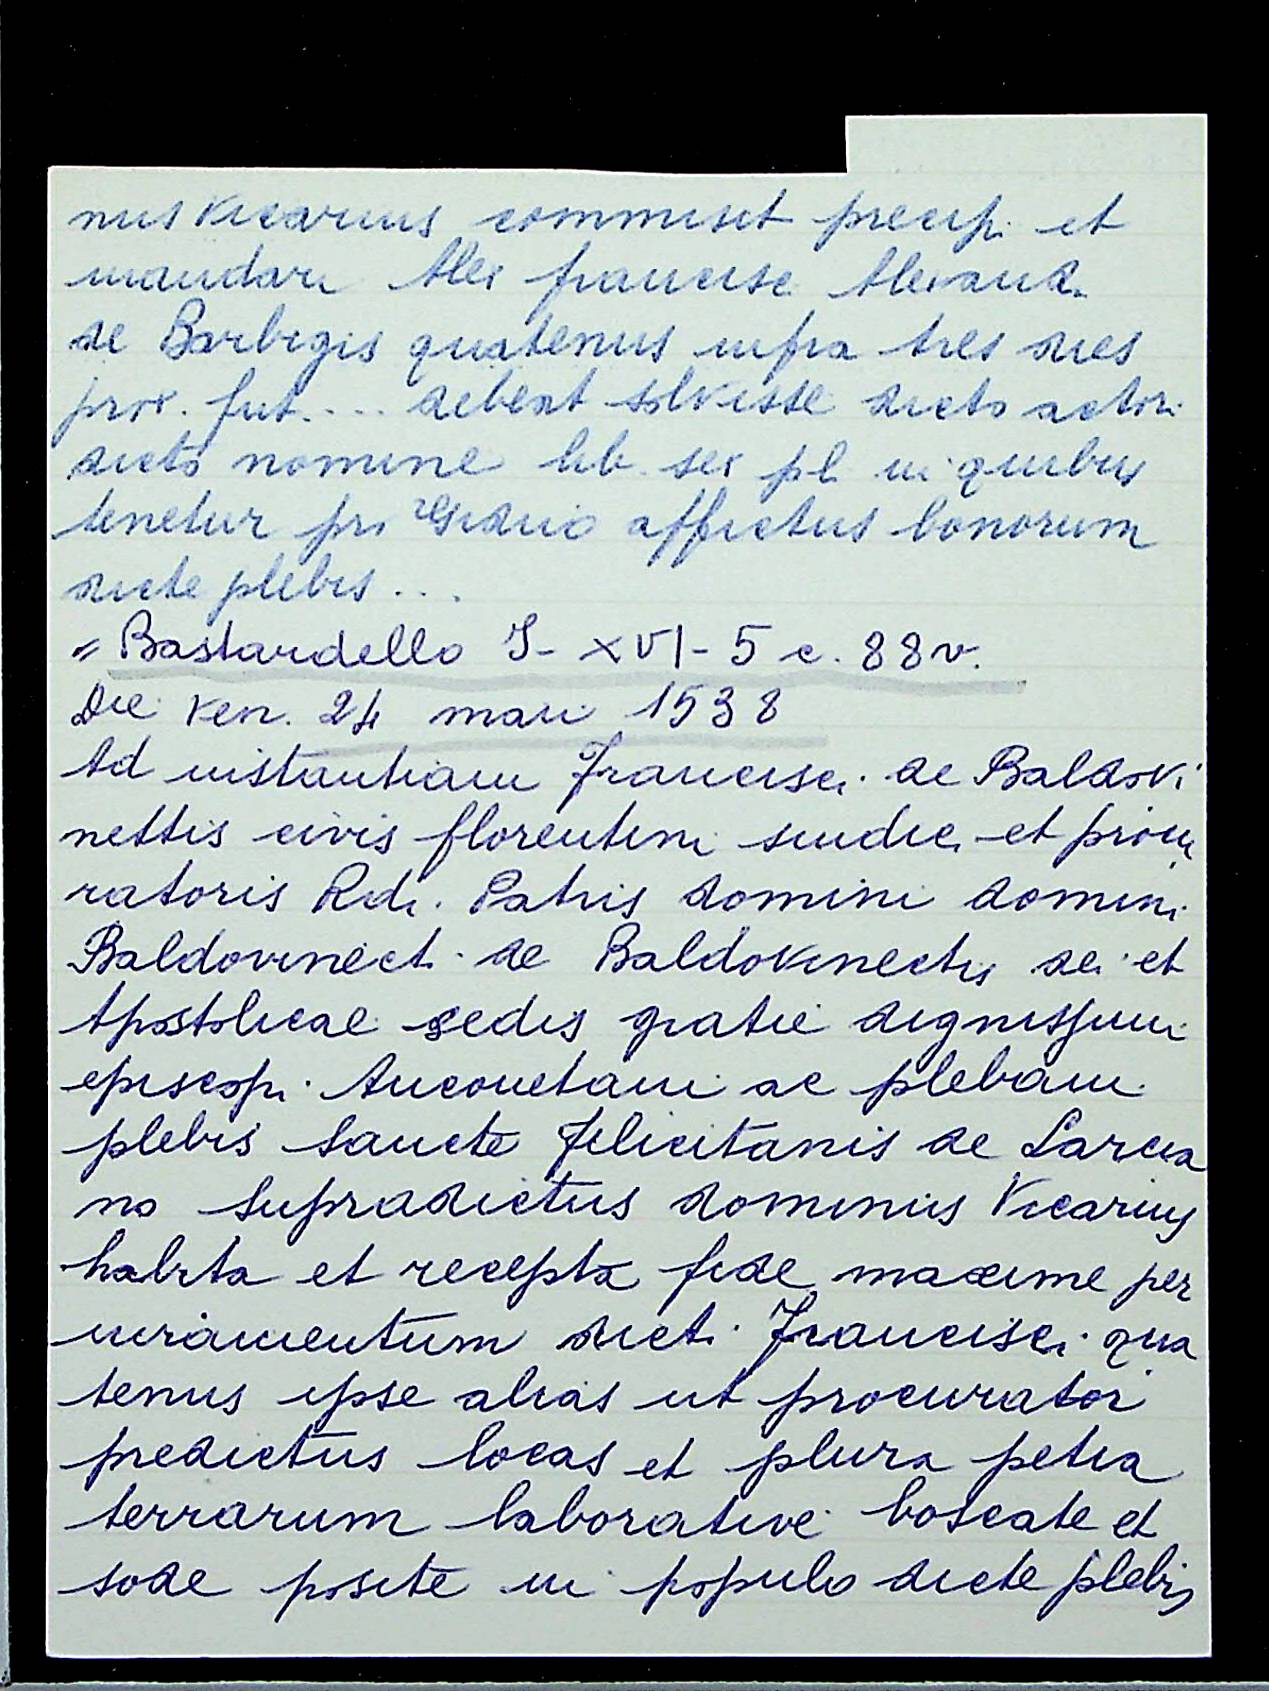 nus Vicarius commisit precipi et
mandari Alex francisci Alexand.
de Barbigis quatenus infra tres dies
prox. fut. ... debeat solvisse dicto actori
dicto nomine lib. sex pl. in quibus
tenetur pro residuo affictus bonorum
dicte plebis ...
" Bastardello I - XVI - 5 c. 88v.
Die Ven. 24 mai 1538
Ad instantiam Francisci de Baldovi
nettis civis florentini sindici et procu
ratoris Rdi. Patris domini domini
Baldovinecti de Baldovinectis dei et
Apostolicae sedis gratie dignissimi
episcopi Anconetani ac plebani
plebis Sancte Felicitanis de Larcia
no supradictus dominus Vicarius
habita et recepta fide maxime per
iuramentum dicti Francisci qua
tenus ipse alias ut procurator
predictus locas et plura petia
terrarum laborative boscate et
sode posite in populo dicte plebis